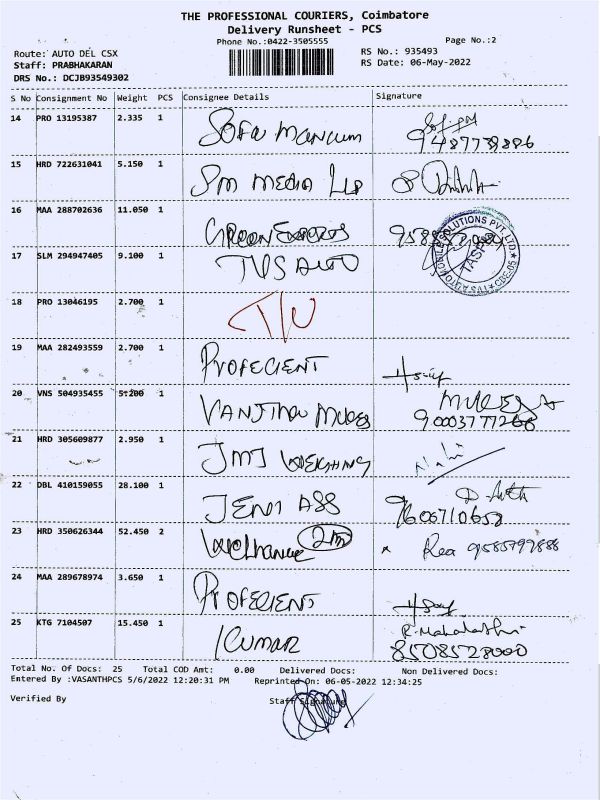 THE PROFESSIONAL COURIERS, Coimbatore
Delivery Runsheet - PCS
Phone No.:0422-3505555 Page No.:2
Route: AUTO DEL CSX RS No.: 935493
Staff: PRABHAKARAN RS Date: 06-May-2022
DRS No.: DCJB93549302
S No Consignment No Weight PCS Consignee Details Signature
14 PRO 13195387 2.335 1
9487738886
15 HRD 722631041 5.150 1 SM MEDIA LLP
16 MAA 288702636 11.050 1
17 SLM 294947405 9.100 1 TVS AUTO
18 PRO 13046195 2.700 1
19 MAA 282493559 2.700 1 PROFECIENT
20 VNS 504935455 5.200 1
21 HRD 305609877 2.950 1 JMJ WEIGHING
22 DBL 410159055 28.100 1 JENI ASS
9606710652
23 HRD 350626344 52.450 2
24 MAA 289678974 3.650 1 PROFECIENT
25 KTG 7104507 15.450 1 KUMAR
8508528000
Total No. Of Docs: 25 Total COD Amt: 0.00 Delivered Docs: Non Delivered Docs:
Entered By :VASANTHPCS 5/6/2022 12:20:31 PM Reprinted On: 06-05-2022 12:34:25
Verified By Staff Signature